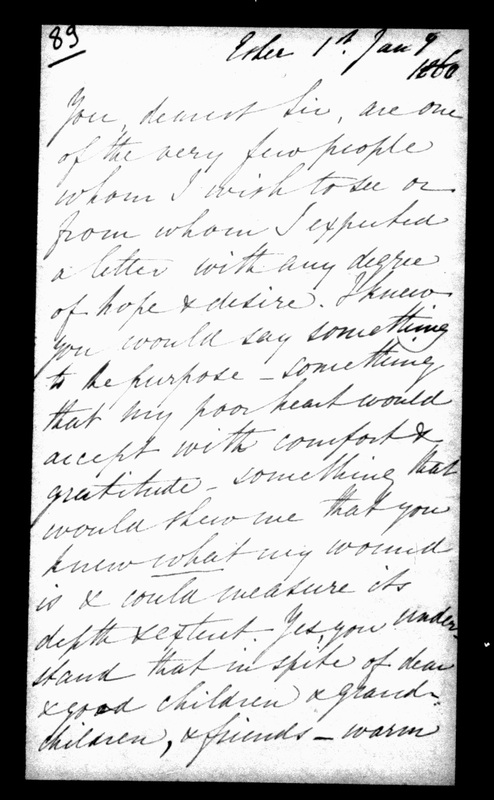 89
Esher 1st Jany
1860
You, dearest Sir, are one
of the very few people
whom I wish to see or
from whom I expected
a letter with any degree
of hope & desire. I knew
you would say something
to the purpose – something
that my poor heart would
accept with comfort &
gratitude – something that
would shew me that you
knew what my wound
is & could measure its
depth & extent. Yes you under-
stand that in spite of dear
& good children & grand-
children, & friends – warm